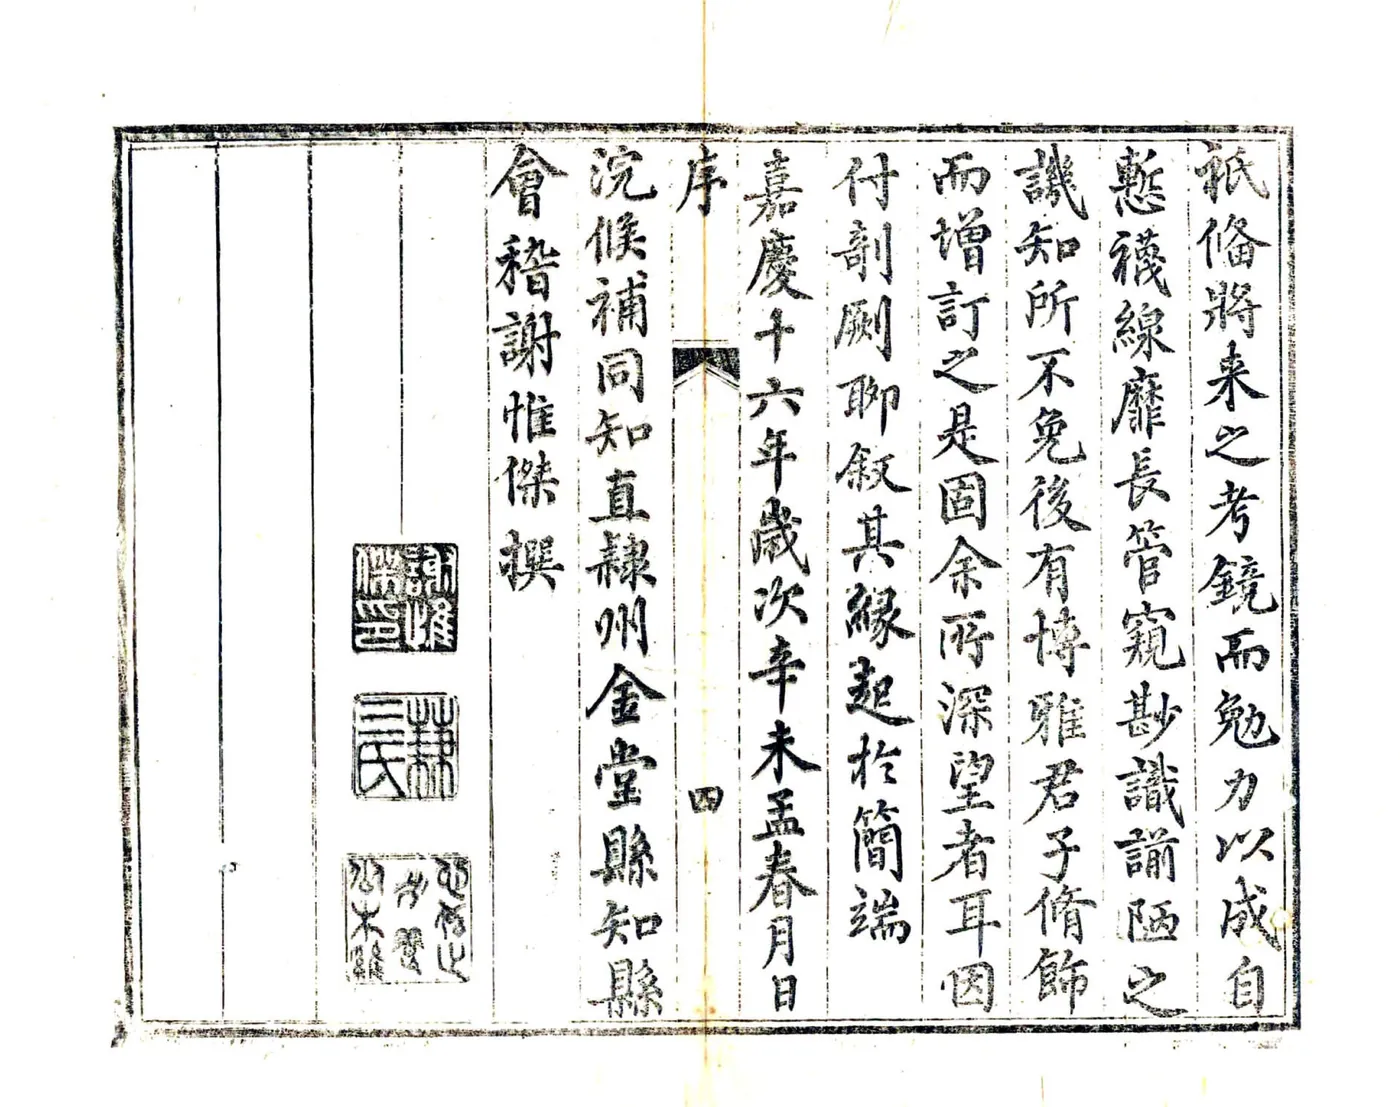 祇俻將来之考鏡而勉力以成自
慙襪線靡長管窺尠識謭陋之
譏知所不免後有博雅君子脩飾
而增訂之是固余所深望者耳因
付剞劂聊叙其緣起於簡端
嘉慶十六年歲次辛未孟春月日
序
四
浣候補同知直隸州金堂縣知縣
會稽謝惟傑撰
謝惟傑印
三氏